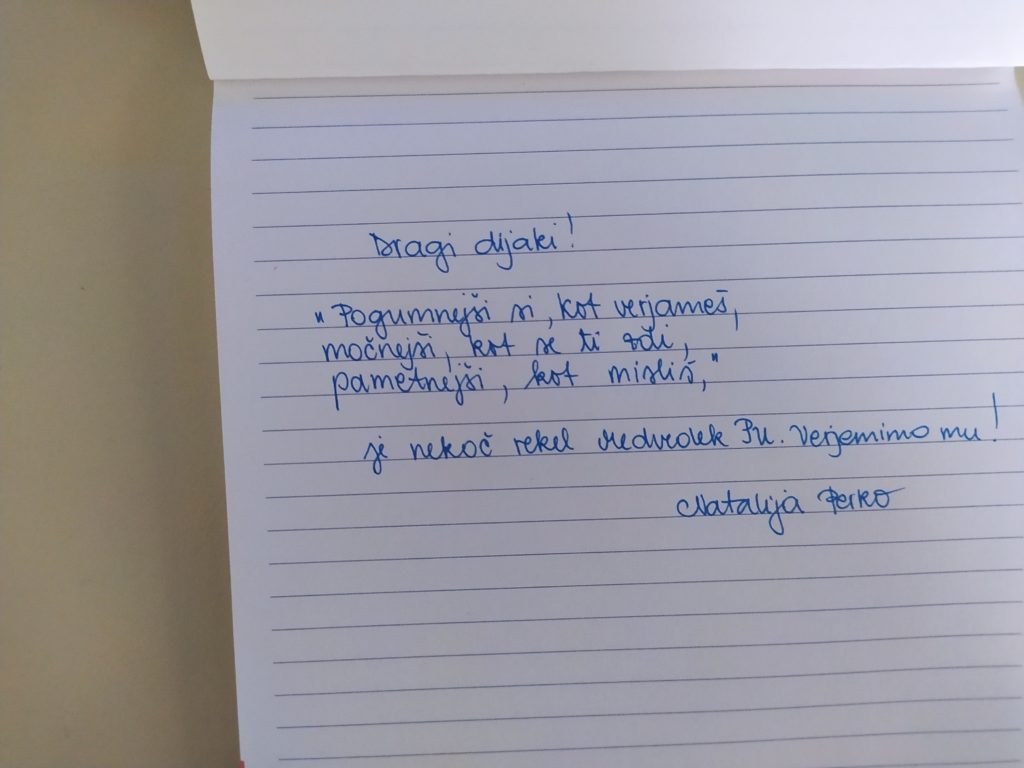 Dragi dijaki!
"Pogumnejši si, kot verjameš,
močnejši, kot se ti zdi,
pametnejši, kot misliš,"
je nekoč rekel Medvedek Pu. Verjemimo mu!
Natalija Perko